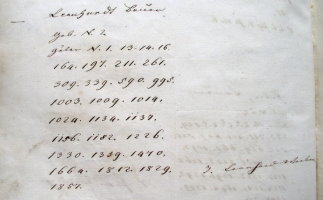 Leonhardt Bauer
geb. N. 2
N. 1. 13. 14. 16.
164. 197. 211. 261.
309. 339. 590. 995.
1003. 1009. 1014.
1024. 1134. 1137.
1156. 1182. 1226.
1330. 1339. 1470.
1664. 1812. 1829.
1857.
J. Leonhard